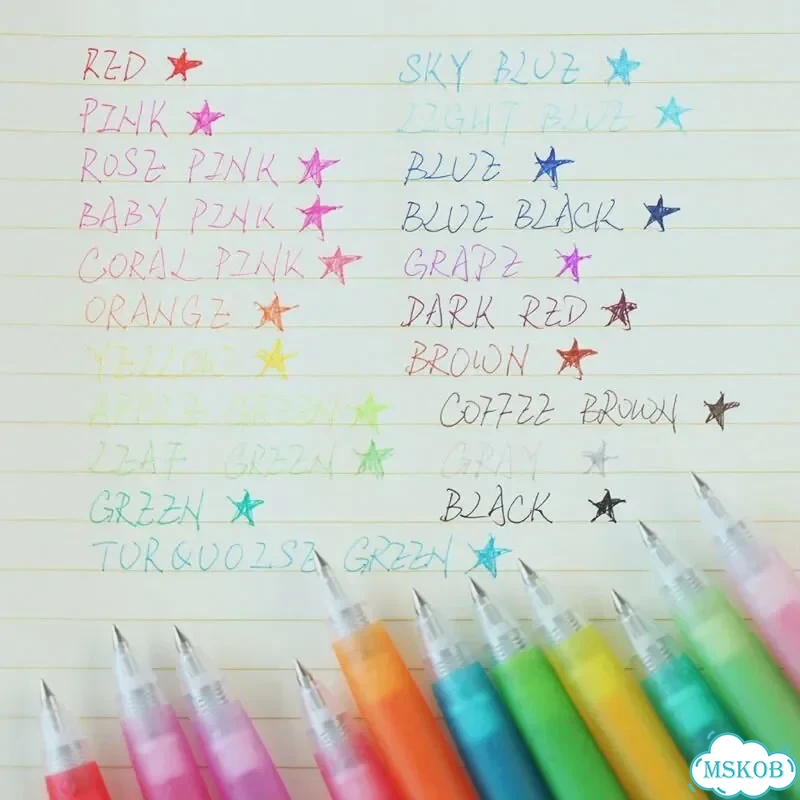 RED
PINK
ROSE PINK
BABY PINK
CORAL PINK
ORANGE
YELLOW
APPLE GREEN
LEAF GREEN
GREEN
TURQUOISE GREEN
SKY BLUE
LIGHT BLUE
BLUE
BLUE BLACK
GRAPE
DARK RED
BROWN
COFFEE BROWN
GRAY
BLACK
MSKOB